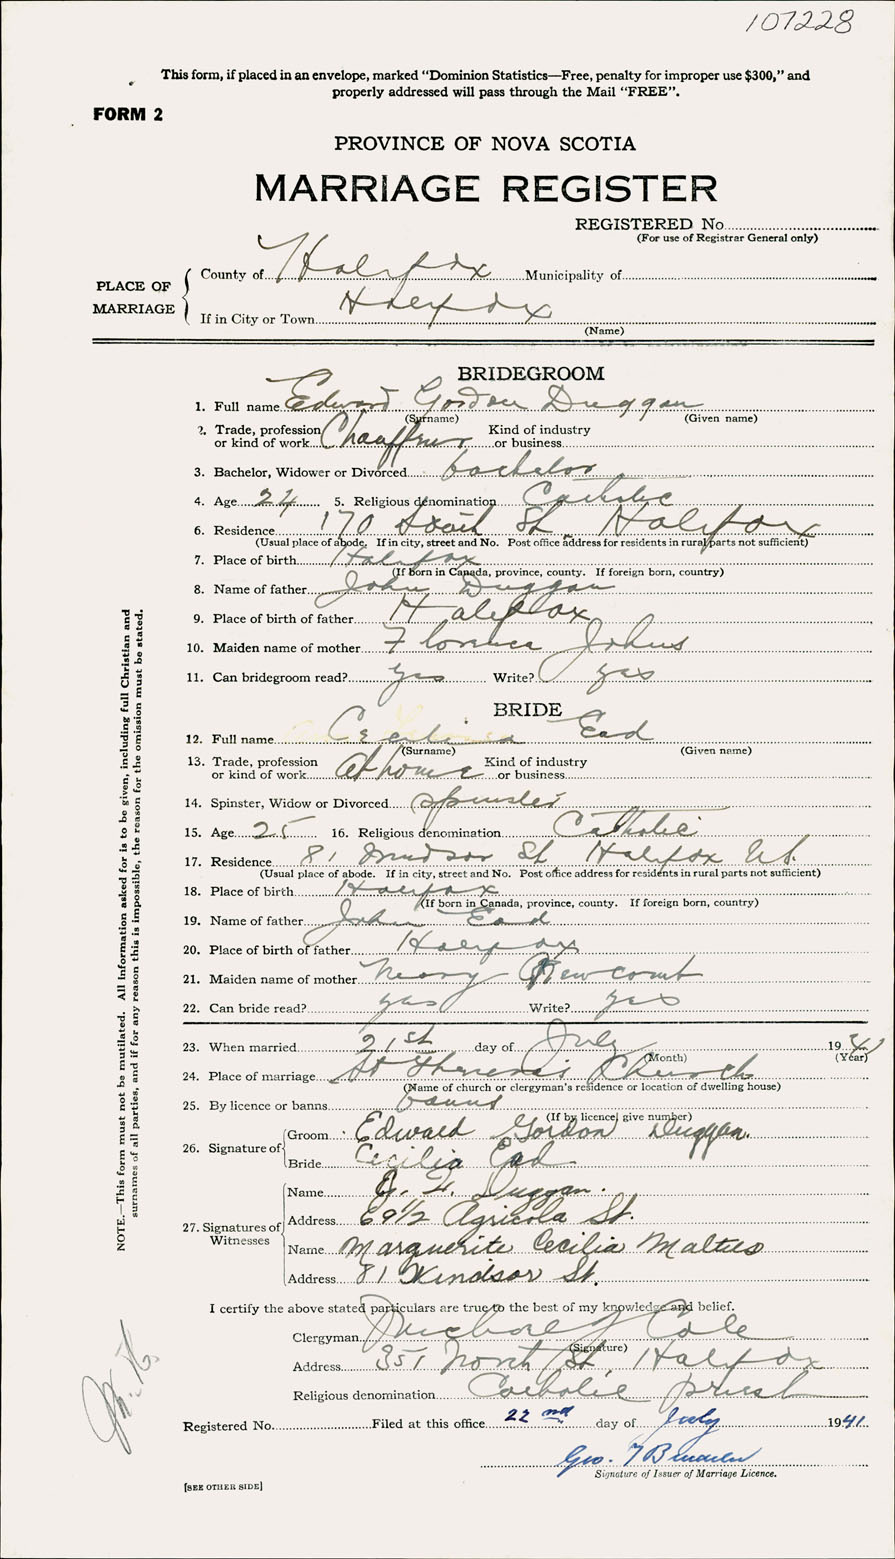 107228
This form, if placed in an envelope, marked "Dominion Statistics—Free, penalty for improper use $300," and
properly addressed will pass through the Mail "FREE".
FORM 2
PROVINCE OF NOVA SCOTIA
MARRIAGE REGISTER
REGISTERED No.
(For use of Registrar General only)
PLACE OF MARRIAGE
County of Halifax Municipality of
If in City or Town Halifax
(Name)
BRIDEGROOM
1. Full name Edward Gordon Duggan
(Surname) (Given name)
2. Trade, profession or kind of work Chauffeur Kind of industry or business
3. Bachelor, Widower or Divorced bachelor
4. Age 24 5. Religious denomination Catholic
6. Residence 170 South St Halifax
(Usual place of abode. If in city, street and No. Post office address for residents in rural parts not sufficient)
7. Place of birth Halifax
(If born in Canada, province, county. If foreign born, country)
8. Name of father John Duggan
9. Place of birth of father Halifax
10. Maiden name of mother Florence Johns
11. Can bridegroom read? yes Write? yes
BRIDE
12. Full name Cecilia Ead
(Surname) (Given name)
13. Trade, profession or kind of work At home Kind of industry or business
14. Spinster, Widow or Divorced spinster
15. Age 25 16. Religious denomination Catholic
17. Residence 81 Windsor St Halifax NS.
(Usual place of abode. If in city, street and No. Post office address for residents in rural parts not sufficient)
18. Place of birth Halifax
(If born in Canada, province, county. If foreign born, country)
19. Name of father John Ead
20. Place of birth of father Halifax
21. Maiden name of mother Mary Newcomb
22. Can bride read? yes Write? yes
23. When married 21st day of July 1941
(Month) (Year)
24. Place of marriage St Theresa's Church
(Name of church or clergyman's residence or location of dwelling house)
25. By licence or banns banns
(If by licence, give number)
26. Signature of
Groom Edward Gordon Duggan.
Bride Cecilia Ead
27. Signatures of Witnesses
Name J. H. Duggan.
Address 69½ Agricola St.
Name Marguerite Cecilia
Address 81 Windsor St.
I certify the above stated particulars are true to the best of my knowledge and belief.
Clergyman Michael Cole
(Signature)
Address 351 North St, Halifax
Religious denomination Catholic priest
Registered No. Filed at this office 22nd day of July 1941
Geo.
Signature of Issuer of Marriage Licence.
[SEE OTHER SIDE]
NOTE.—This form must not be mutilated. All information asked for is to be given, including full Christian and
surnames of all parties, and if for any reason this is impossible, the reason for the omission must be stated.